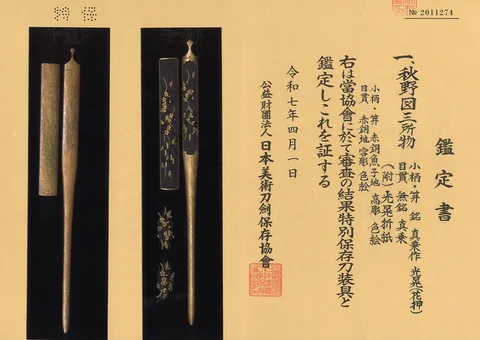 № 2011274
鑑定書
一、秋野図三所物
小柄・笄 銘 真乗作 光晃(花押)
目貫 無銘 真乗
(附)光晃折紙
小柄・笄 赤銅魚子地 高彫 色絵
目貫 赤銅地 容彫 色絵
右は當協會に於て審査の結果特別保存刀装具と
鑑定しこれを証する
令和七年四月一日
公益財團法人 日本美術刀劍保存協會